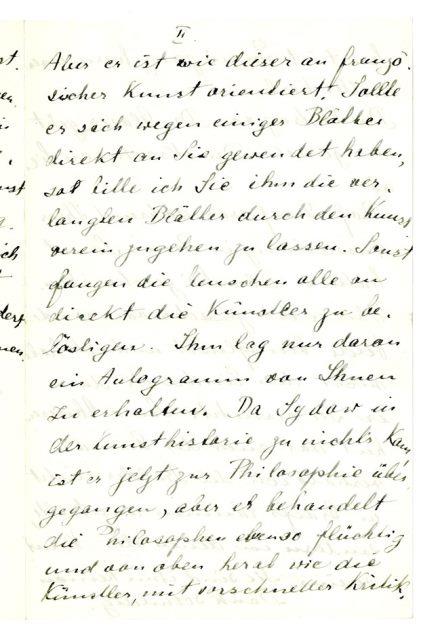 II
Aber er ist wie dieser an franzö-
sischer Kunst orientiert. Sollte
er sich wegen einiger Blätter
direkt an Sie gewendet haben,
so bitte ich Sie ihm die ver-
langten Blätter durch den Kunst
verein zugehen zu lassen. Sonst
fangen die Menschen alle an
direkt die Künstler zu be-
lästigen. Ihm lag nur daran
ein Autogramm von Ihnen
zu erhalten. Da Sydow in
der Kunsthistorie zu nichts kam
ist er jetzt zur Philosophie über
gegangen, aber er behandelt
die Philosophen ebenso flüchtig
und von oben herab wie die
Künstler, mit vorschneller Kritik.